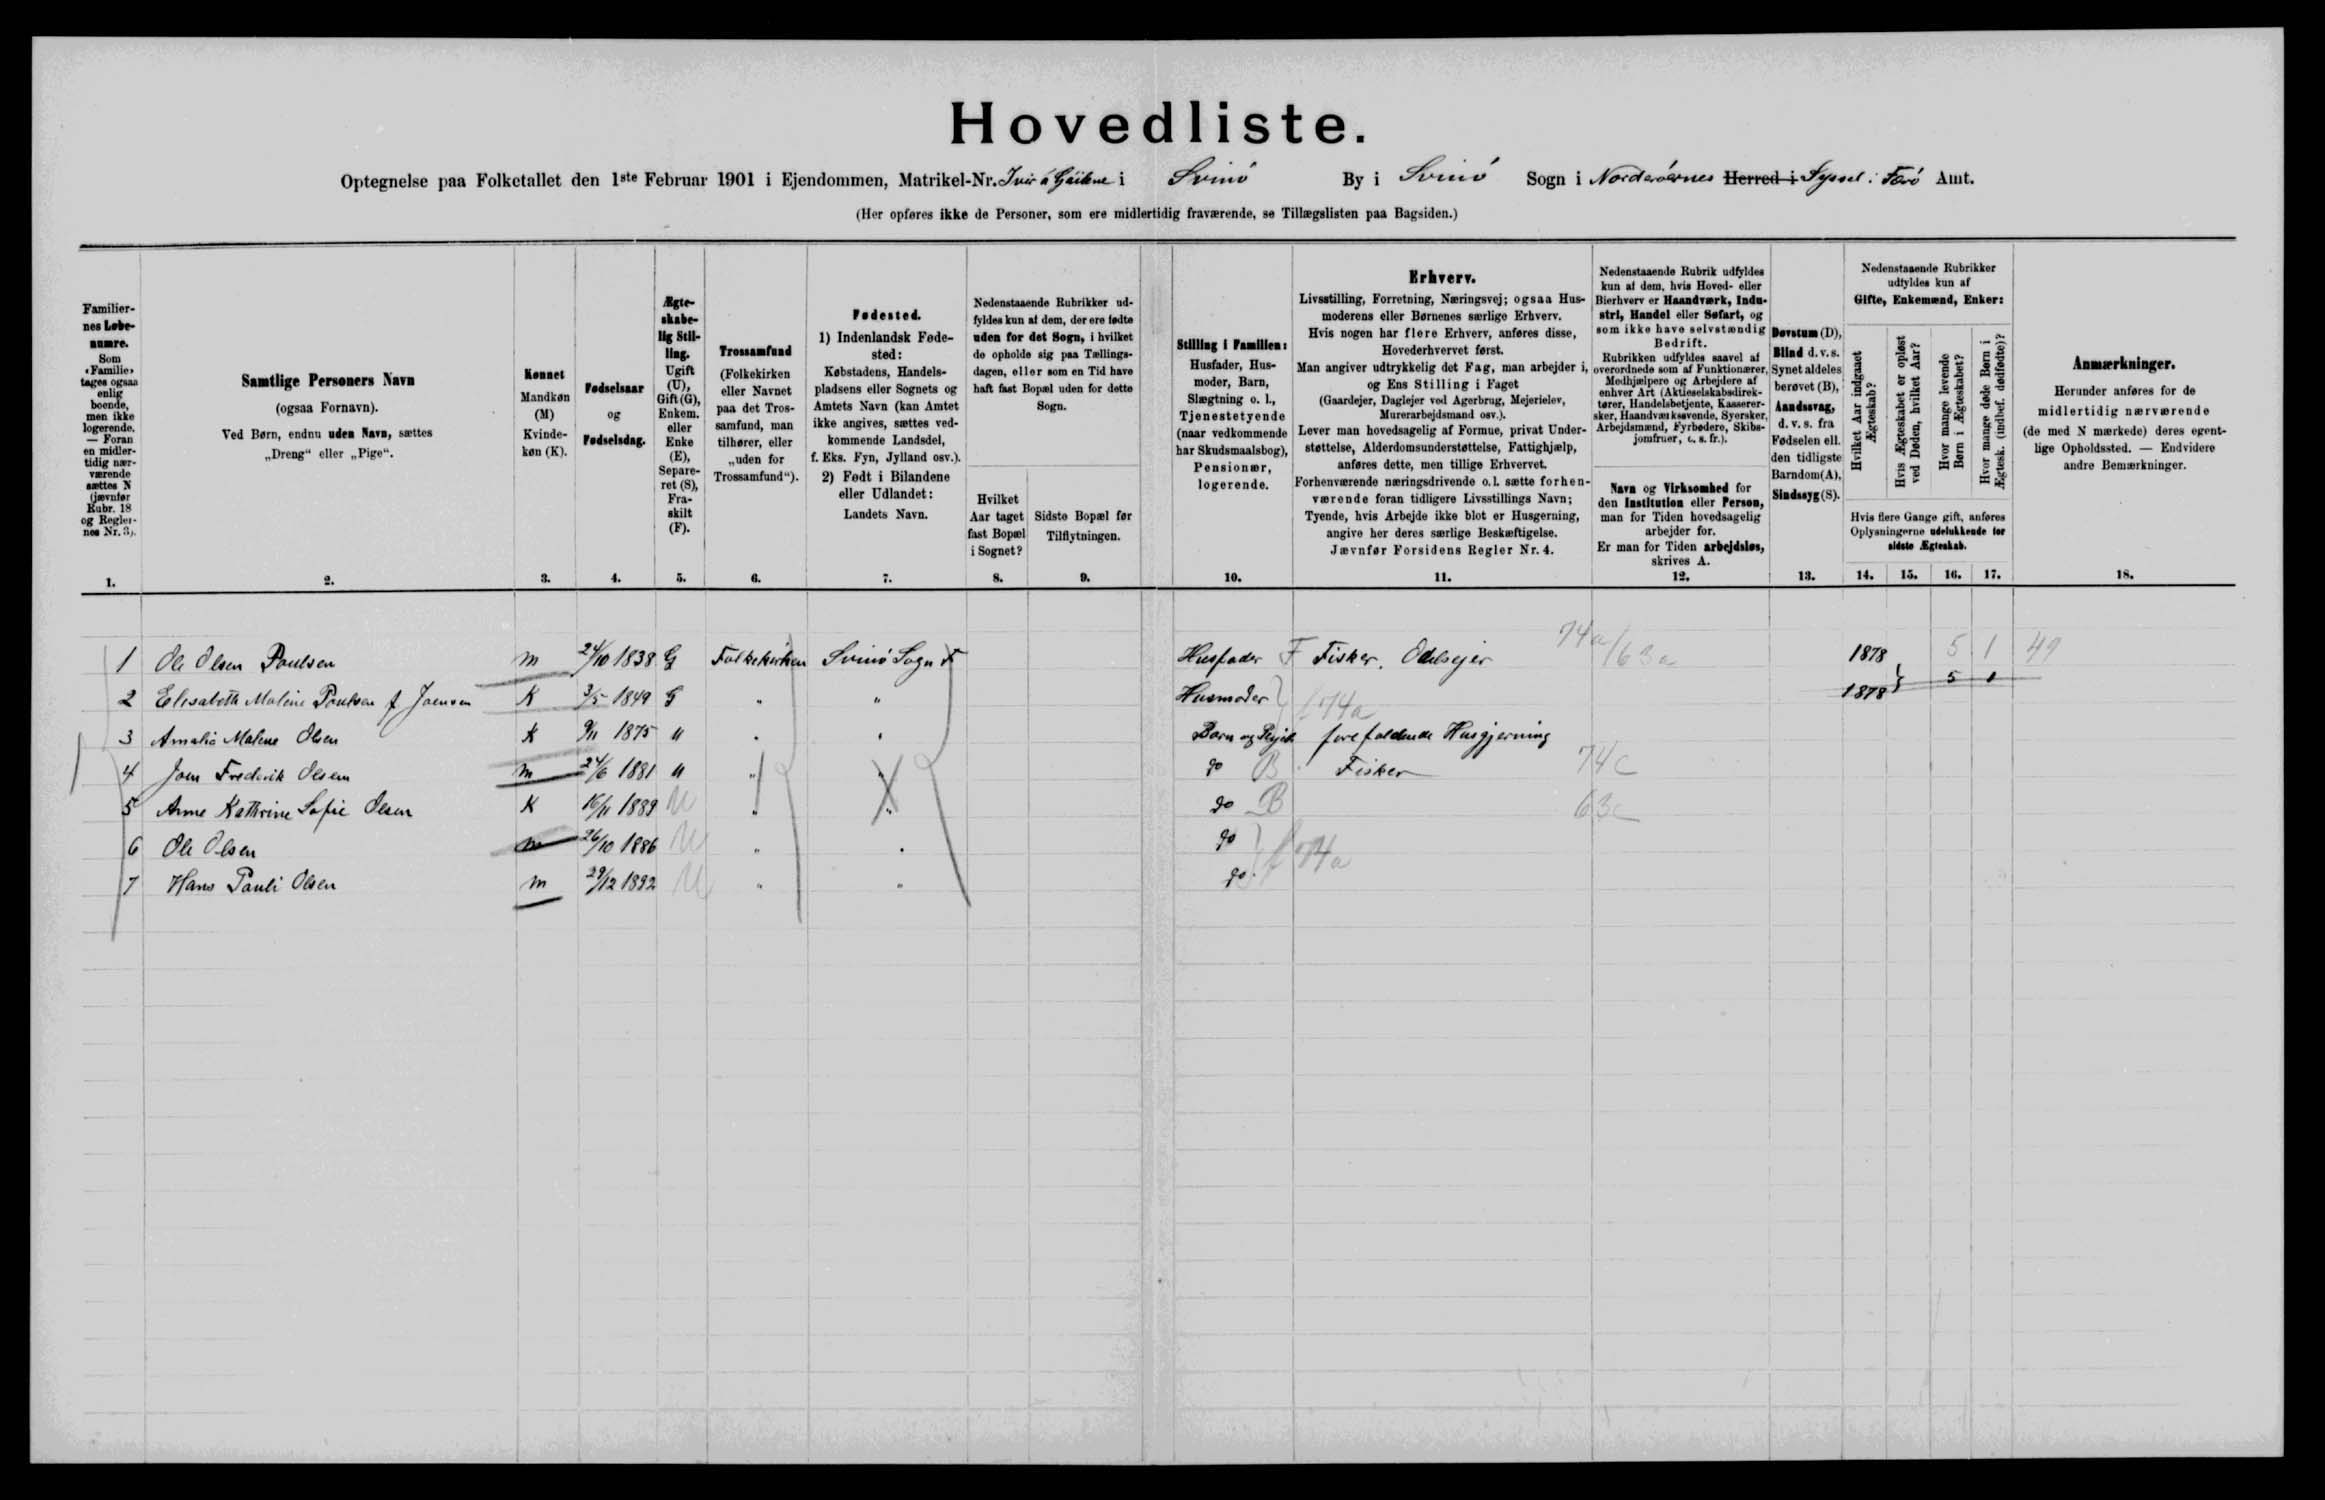 Hovedliste.
Optegnelse paa Folketallet den 1ste Februar 1901 i Ejendommen, Matrikel-Nr. i Svinó By i Svinó Sogn i Norderóernes Herred i Syssel i Færó Amt.
(Her opføres ikke de Personer, som ere midlertidig fraværende, se Tillægslisten paa Bagsiden.)
Familier-
nes Løbe-
numre.
Som
«Familie»
tages ogsaa
enlig
boende,
men ikke
logerende.
— Foran
en midler-
tidig nær-
værende
sættes N
(jævnfør
Rubr. 18
og Regler-
nes Nr. 3).
1.
Samtlige Personers Navn
(ogsaa Fornavn).
Ved Børn, endnu uden Navn, sættes
„Dreng“ eller „Pige“.
2.
Kønnet
Mandkøn
(M)
Kvinde-
køn (K).
3.
Fødselsaar
og
Fødselsdag.
4.
Ægte-
skabe-
lig Stil-
ling.
Ugift
(U),
Gift (G),
Enkem.
eller
Enke
(E),
Separe-
ret (S),
Fra-
skilt
(F).
5.
Trossamfund
(Folkekirken
eller Navnet
paa det Tros-
samfund, man
tilhører, eller
„uden for
Trossamfund“).
6.
Fødested.
1) Indenlandsk Føde-
sted:
Købstadens, Handels-
pladsens eller Sognets og
Amtets Navn (kan Amtet
ikke angives, sættes ved-
kommende Landsdel,
f. Eks. Fyn, Jylland osv.).
2) Født i Bilandene
eller Udlandet:
Landets Navn.
7.
Nedenstaaende Rubrikker ud-
fyldes kun af dem, der ere fødte
uden for det Sogn, i hvilket
de opholde sig paa Tællings-
dagen, eller som en Tid have
haft fast Bopæl uden for dette
Sogn.
Hvilket
Aar taget
fast Bopæl
i Sognet?
8.
Sidste Bopæl før
Tilflytningen.
9.
Stilling i Familien:
Husfader, Hus-
moder, Barn,
Slægtning o. l.,
Tjenestetyende
(naar vedkommende
har Skudsmaalsbog),
Pensionær,
logerende.
10.
Erhverv.
Livsstilling, Forretning, Næringsvej; ogsaa Hus-
moderens eller Børnenes særlige Erhverv.
Hvis nogen har flere Erhverv, anføres disse,
Hovederhvervet først.
Man angiver udtrykkelig det Fag, man arbejder i,
og Ens Stilling i Faget
(Gaardejer, Daglejer ved Agerbrug, Mejerielev,
Murerarbejdsmand osv.).
Lever man hovedsagelig af Formue, privat Under-
støttelse, Alderdomsunderstøttelse, Fattighjælp,
anføres dette, men tillige Erhvervet.
Forhenværende næringsdrivende o.l. sætte forhen-
værende foran tidligere Livsstillings Navn;
Tyende, hvis Arbejde ikke blot er Husgerning,
angive her deres særlige Beskæftigelse.
Jævnfør Forsidens Regler Nr. 4.
11.
Nedenstaaende Rubrik udfyldes
kun af dem, hvis Hoved- eller
Bierhverv er Haandværk, Indu-
stri, Handel eller Søfart, og
som ikke have selvstændig
Bedrift.
Rubrikken udfyldes saavel af
overordnede som af Funktionærer,
Medhjælpere og Arbejdere af
enhver Art (Aktieselskabsdirek-
tører, Handelsbetjente, Kasserer-
sker, Haandværkssvende, Syersker,
Arbejdsmænd, Fyrbødere, Skibs-
jomfruer, o. s. fr.).
Navn og Virksomhed for
den Institution eller Person,
man for Tiden hovedsagelig
arbejder for.
Er man for Tiden arbejdsløs,
skrives A.
12.
Døvstum (D),
Blind d. v. s.
Synet aldeles
berøvet (B),
Aandssvag,
d. v. s. fra
Fødselen ell.
den tidligste
Barndom (A),
Sindssyg (S).
13.
Nedenstaaende Rubrikker
udfyldes kun af
Gifte, Enkemænd, Enker:
Hvilket Aar indgaaet
Ægteskab?
Hvis Ægteskabet er opløst
ved Døden, hvilket Aar?
Hvor mange levende
Børn i Ægteskabet?
Hvor mange døde Børn i
Ægtesk. (indbef. dødfødte)?
Hvis flere Gange gift, anføres
Oplysningerne udelukkende for
sidste Ægteskab.
14. 15. 16. 17.
Anmærkninger.
Herunder anføres for de
midlertidig nærværende
(de med N mærkede) deres egent-
lige Opholdssted. — Endvidere
andre Bemærkninger.
18.
1 Ole Olsen Poulsen M 24/10 1838 G Folkekirken Svinó Sogn F Husfader F Fisker. Odelsejer 74a/63a 1878 5 1 49
2 Elisabeth Malene Poulsen f Joensen K 3/5 1849 G " " Husmoder f 74a 1878 5 1
3 Amalie Malene Olsen K 9/11 1875 " " " Børn og forefaldende Husgjerning
4 Joen Frederik Olsen M 24/6 1881 " " " do B Fisker 74c
5 Anne Kathrine Sofie Olsen K 16/11 1889 U " " do B 63c
6 Ole Olsen m 26/10 1886 U " " do
7 Hans Pauli Olsen m 29/12 1892 U " " do f 74a